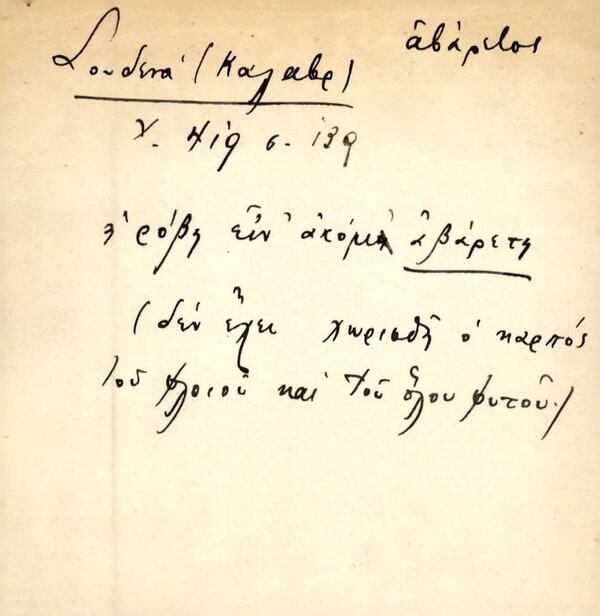 ἀβάρετος
Σουδενά (Καλαβρ)
χ. 419 σ. 139
ἡ ρόβη εἶν' ἀκόμα ἀβάρετη
(δέν ἔχει χωρισθῆ ὁ καρπός
τοῦ φλοιοῦ καί τοῦ ὅλου φυτοῦ.)